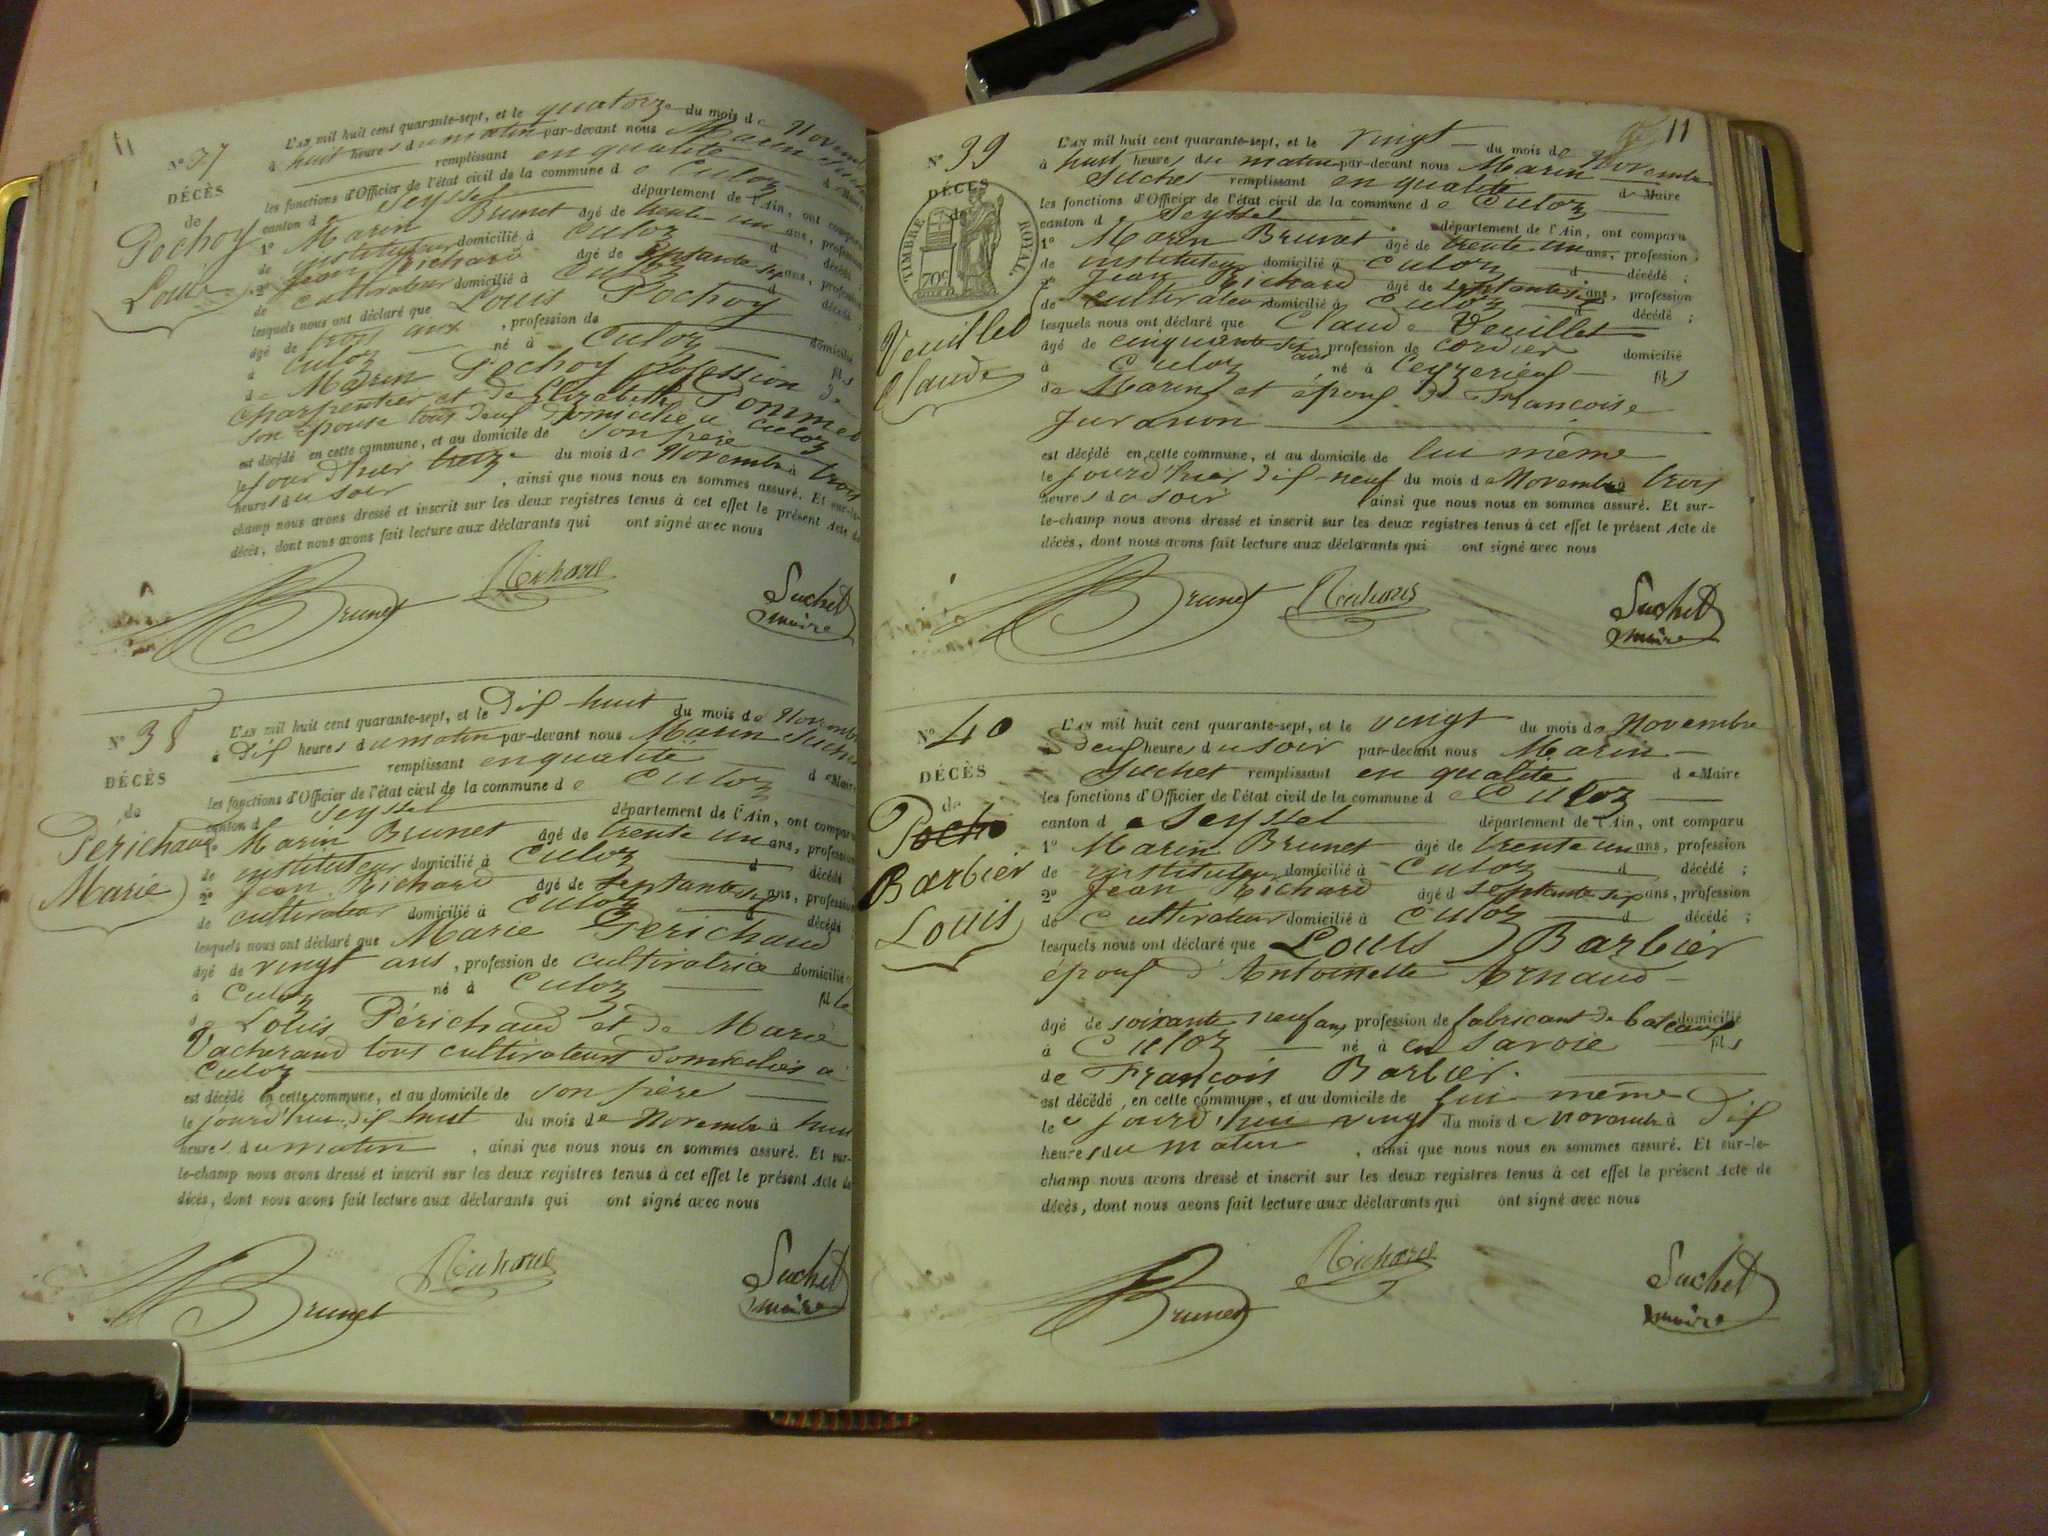 11
N° 37
DÉCÈS
de
Pochoy
Louis
L'AN mil huit cent quarante-sept, et le quatorze du mois de Novembre
à huit heures du matin par-devant nous Marin Suchet
remplissant en qualité de Maire
les fonctions d'Officier de l'état civil de la commune de Culoz
canton de Seyssel département de l'Ain, ont comparu
1° Marin Brunet âgé de trente un ans, profession
de instituteur domicilié à Culoz d décédé ;
2° Jean Richard âgé de septante six ans, profession
de cultivateur domicilié à Culoz d décédé ;
lesquels nous ont déclaré que Louis Pochoy
âgé de trois ans , profession de domicilié
à Culoz né à Culoz fils
de Marin Pochoy profession de
charpentier et de Elizabeth Pommel
son épouse tous deux domicilié a Culoz
est décédé en cette commune, et au domicile de son père
le jour d'hier treize du mois de Novembre à trois
heures du soir , ainsi que nous nous en sommes assuré. Et sur-le-
champ nous avons dressé et inscrit sur les deux registres tenus à cet effet le présent Acte de
décès, dont nous avons fait lecture aux déclarants qui ont signé avec nous
Brunet Richard Suchet
maire
N° 38
DÉCÈS
de
Périchaud
Marie
L'AN mil huit cent quarante-sept, et le dix huit du mois de Novembre
à dix heures du matin par-devant nous Marin Suchet
remplissant en qualité de Maire
les fonctions d'Officier de l'état civil de la commune de Culoz
canton d Seyssel département de l'Ain, ont comparu
1° Marin Brunet âgé de trente un ans, profession
de instituteur domicilié à Culoz d décédé ;
2° Jean Richard âgé de septante six ans, profession
de cultivateur domicilié à Culoz d décédé ;
lesquels nous ont déclaré que Marie Perichaud
âgé de vingt ans , profession de cultivatrice domicilié
à Culoz né à Culoz fille
de Louis Périchaud et de Marie
Vacherand tous cultivateurs domiciliés à
Culoz
est décédé en cette commune, et au domicile de son père
le jourd'hui dix huit du mois de Novembre à huit
heures du matin , ainsi que nous nous en sommes assuré. Et sur-
le-champ nous avons dressé et inscrit sur les deux registres tenus à cet effet le présent Acte de
décès, dont nous avons fait lecture aux déclarants qui ont signé avec nous
Brunet Richard Suchet
maire
11
N° 39
DÉCÈS
TIMBRE ROYAL
70c
Veuillet
Claude
L'AN mil huit cent quarante-sept, et le vingt du mois de Novembre
à huit heures du matin par-devant nous Marin
Suchet remplissant en qualité de Maire
les fonctions d'Officier de l'état civil de la commune de Culoz
canton d Seyssel département de l'Ain, ont comparu
1° Marin Brunet âgé de trente un ans, profession
de instituteur domicilié à Culoz d décédé ;
2° Jean Richard âgé de septante six ans, profession
de cultivateur domicilié à Culoz d décédé ;
lesquels nous ont déclaré que Claude Veuillet
âgé de cinquante six ans profession de cordier domicilié
à Culoz , né à Ceyzerieu fils
de Marin et époux de Françoise
Juranon
est décédé en cette commune, et au domicile de lui même
le jourd'hier dix-neuf du mois de Novembre à trois
heures du soir ainsi que nous nous en sommes assuré. Et sur-
le-champ nous avons dressé et inscrit sur les deux registres tenus à cet effet le présent Acte de
décès, dont nous avons fait lecture aux déclarants qui ont signé avec nous
Brunet Richard Suchet
maire
N° 40
DÉCÈS
de
Poch
Barbier
Louis
L'AN mil huit cent quarante-sept, et le vingt du mois de Novembre
à deux heures du soir par-devant nous Marin
Suchet remplissant en qualité de Maire
les fonctions d'Officier de l'état civil de la commune de Culoz
canton de Seyssel département de l'Ain, ont comparu
1° Marin Brunet âgé de trente un ans, profession
de instituteur domicilié à Culoz d décédé ;
2° Jean Richard âgé d septante six ans, profession
de Cultivateur domicilié à Culoz d décédé ;
lesquels nous ont déclaré que Louis Barbier
époux d'Antoinette Arnaud
âgé de soixante neuf ans profession de fabricant de bateaux domicilié
à Culoz né à en Savoie fils
de François Barbier.
est décédé en cette commune, et au domicile de lui même
le jourd'hui vingt du mois de novembre à dix
heures du matin , ainsi que nous nous en sommes assuré. Et sur-le-
champ nous avons dressé et inscrit sur les deux registres tenus à cet effet le présent Acte de
décès, dont nous avons fait lecture aux déclarants qui ont signé avec nous
Brunet Richard Suchet
maire